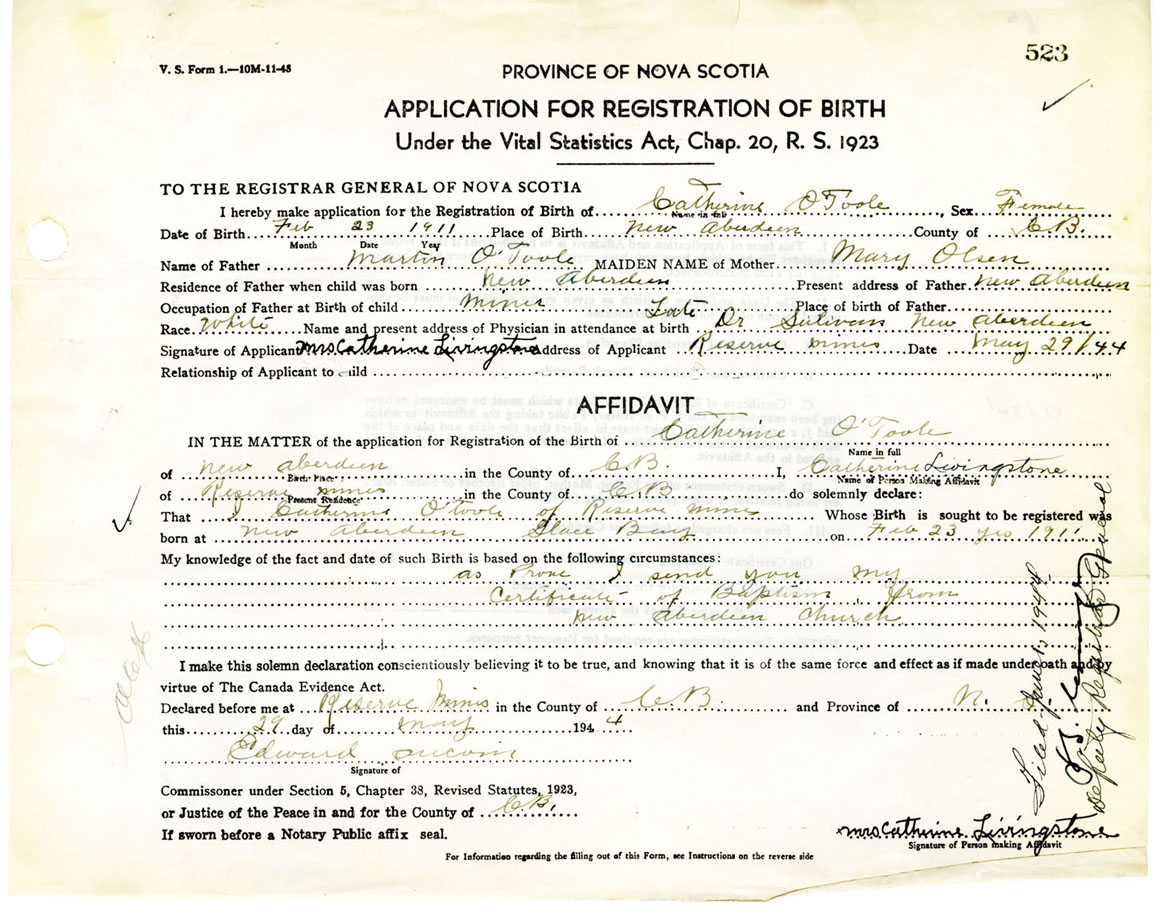 523
V. S. Form 1.—10M-11-43
PROVINCE OF NOVA SCOTIA
APPLICATION FOR REGISTRATION OF BIRTH
Under the Vital Statistics Act, Chap. 20, R. S. 1923
TO THE REGISTRAR GENERAL OF NOVA SCOTIA
I hereby make application for the Registration of Birth of Catherine O'Toole, Sex Female
Name in full
Date of Birth Feb 23 1911 Place of Birth New Aberdeen County of C.B.
Month Date Year
Name of Father Martin O'Toole MAIDEN NAME of Mother Mary Olsen
Residence of Father when child was born New Aberdeen Present address of Father New Aberdeen
Occupation of Father at Birth of child Miner Place of birth of Father
Race White Name and present address of Physician in attendance at birth Late Dr Sulivan New Aberdeen
Signature of Applicant Mrs Catherine Livingstone Address of Applicant Reserve Mines Date May 29/44
Relationship of Applicant to child
AFFIDAVIT
IN THE MATTER of the application for Registration of the Birth of Catherine O'Toole
Name in full
of New Aberdeen in the County of C.B. I, Catherine Livingstone
Birth Place Name of Person Making Affidavit
of Reserve Mines in the County of C.B. do solemnly declare:
Present Residence
That I Catherine O'Toole of Reserve Mines Whose Birth is sought to be registered was
born at New Aberdeen Glace Bay on Feb 23 1911
My knowledge of the fact and date of such Birth is based on the following circumstances:
as Prove I send you my
Certificate of Baptism from
New Aberdeen Church
I make this solemn declaration conscientiously believing it to be true, and knowing that it is of the same force and effect as if made under oath and by
virtue of The Canada Evidence Act.
Declared before me at Reserve Mines in the County of C.B. and Province of N.
this 29 day of May 1944
Edward
Signature of
Commissoner under Section 5, Chapter 38, Revised Statutes, 1923,
or Justice of the Peace in and for the County of C.B.
If sworn before a Notary Public affix seal.
Mrs Catherine Livingstone
Signature of Person making Affidavit
For Information regarding the filling out of this Form, see Instructions on the reverse side
Filed 1944
Deputy Registrar General